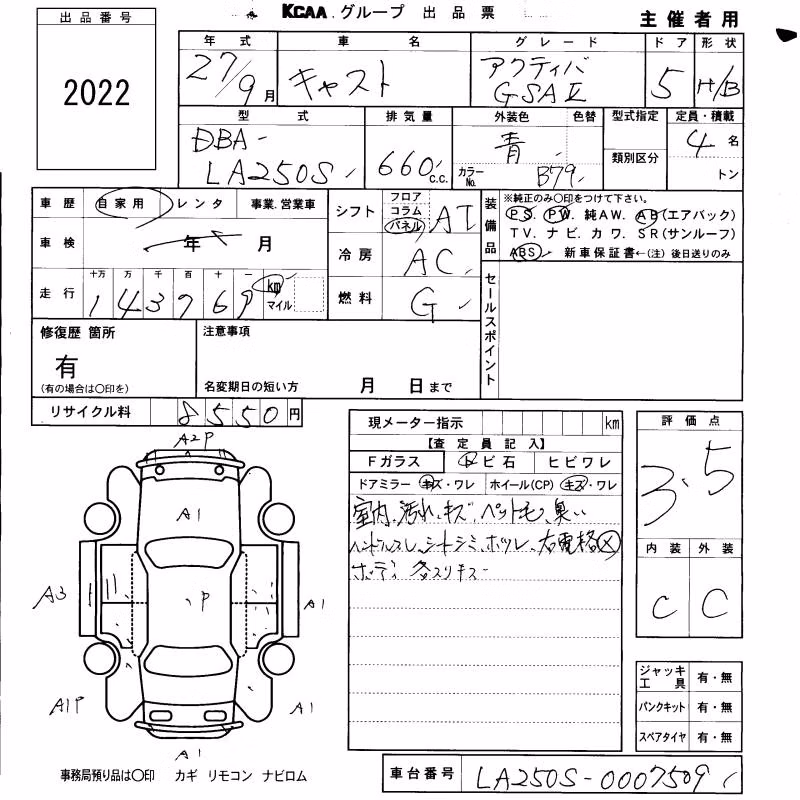 KCAA グループ 出品票 主催者用
出品番号
2022
年式 車名 グレード ドア 形状
27/9月 キャスト アクティバ GSAⅡ 5 H/B
型式 排気量 外装色 色替 型式指定 定員・積載
DBA-
LA250S 660 c.c. 青 カラーNo. B79 類別区分 4名
トン
車歴 自家用 レンタ 事業.営業車
車検 年 月
走行 十万 万 千 百 十 一
143769 km マイル
シフト フロア コラム パネル AT
冷房 AC
燃料 G
装備品 ※純正のみ〇印をつけて下さい。
PS. PW. 純AW. AB(エアバック)
TV. ナビ. カワ. SR(サンルーフ)
ABS 新車保証書←(注) 後日送りのみ
セールスポイント
修復歴 箇所
有
(有の場合は〇印を)
注意事項
名変期日の短い方 月 日まで
リサイクル料 8550円
現メーター指示 km
【査定員記入】
Fガラス トビ石 ヒビワレ
ドアミラー キズ・ワレ ホイール(CP) キズ・ワレ
室内、汚れ、キズ、ペット毛、臭い
ハンドルスレ、シートシミ、ホツレ、右電格×
ボディ 各スリキズ
評価点
3.5
内装 外装
C C
A2P
A1
A3
P
A1
A1P
A1
A1
ジャッキ工具 有・無
パンクキット 有・無
スペアタイヤ 有・無
事務局預り品は〇印 カギ リモコン ナビロム
車台番号 LA250S-0007509